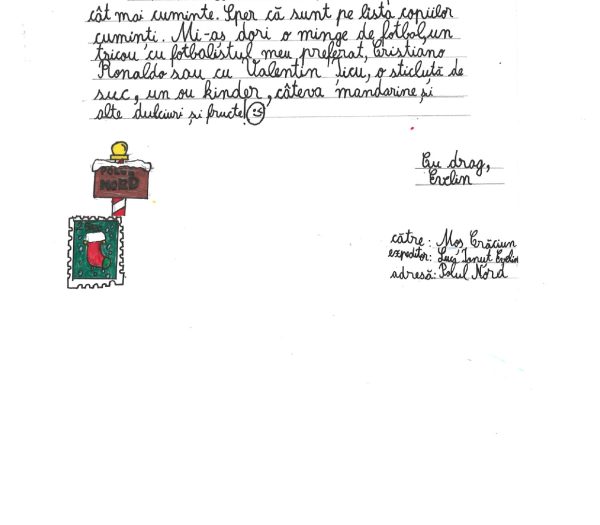 cât mai cuminte. Sper că sunt pe lista copiilor
cuminti. Mi-aș dori o minge de fotbal, un
tricou cu fotbalistul meu preferat, Cristiano
Ronaldo sau cu Valentin Țicu, o sticluță de
suc, un ou kinder, câteva mandarine și
alte dulciuri și fructe!
POLUL
NORD
Cu drag,
Evelin
către: Moș Crăciun
expeditor: Ionuț Evelin
adresă: Polul Nord